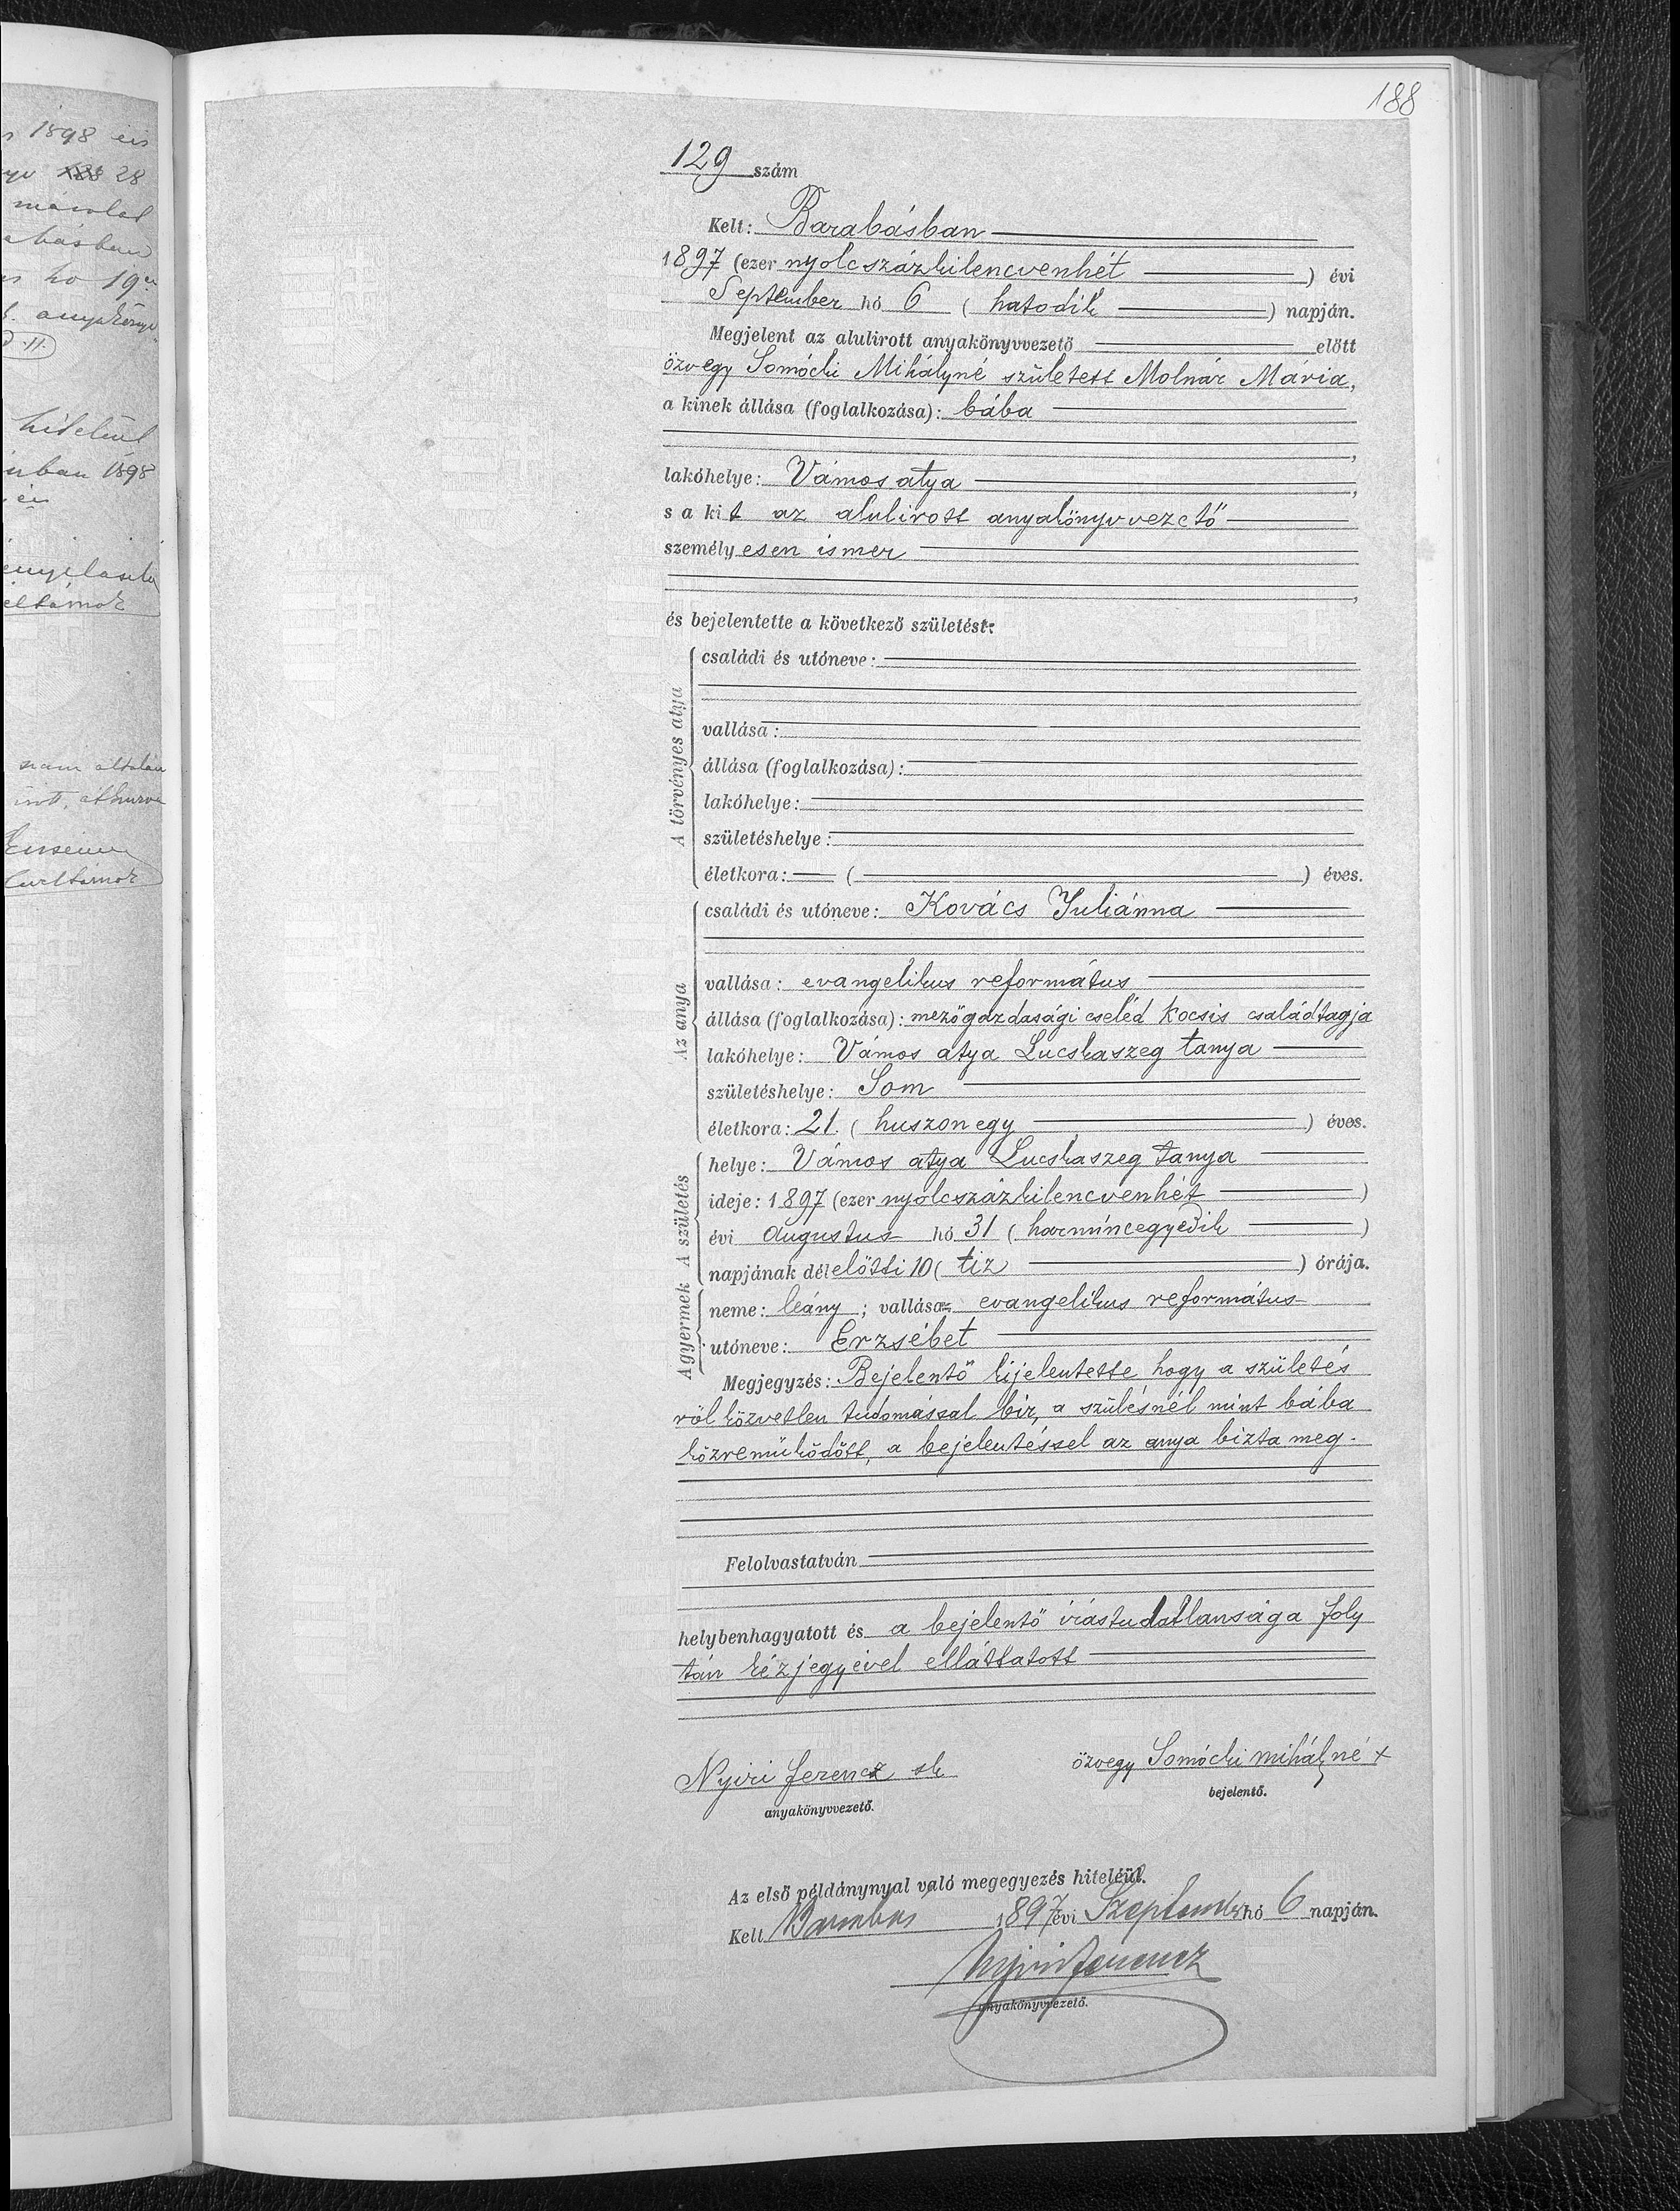 1898 évi
28
másolat
hó 19én
anyakönyv
hiteléül
1898
évi
188
129 szám
Kelt: Barabásban
1897 (ezer nyolcszázkilencvenhét ) évi
September hó 6 ( hatodik ) napján.
Megjelent az alulirott anyakönyvvezető előtt
özvegy Somócki Mihályné született Molnár Mária,
a kinek állása (foglalkozása): bába
,
lakóhelye: Vámos atya ,
s a kit az alulirott anyakönyvvezető
személyesen ismer
,
és bejelentette a következő születést:
A törvényes atya
családi és utóneve:
vallása:
állása (foglalkozása):
lakóhelye:
születéshelye:
életkora: ( ) éves.
Az anya
családi és utóneve: Kovács Juliánna
vallása: evangelikus református
állása (foglalkozása): mezőgazdasági cseléd kocsis családtagja
lakóhelye: Vámos atya Lucskaszeg tanya
születéshelye: Som
életkora: 21. ( huszonegy ) éves.
A születés
helye: Vámos atya Lucskaszeg tanya
ideje: 1897 (ezer nyolcszázkilencvenhét )
évi augustus hó 31 ( harmincegyedik )
napjának délelőtti 10 ( tiz ) órája.
A gyermek
neme: leány ; vallása: evangelikus református
utóneve: Erzsébet
Megjegyzés: Bejelentő kijelentette hogy a születés
ről közvetlen tudomással bir, a szülésnél mint bába
közreműködött, a bejelentéssel az anya bizta meg.
Felolvastatván
helybenhagyatott és a bejelentő irástudatlansága foly
tán kézjegyével elláttatott
Nyiri ferencz sk özvegy Somócki mihályné x
anyakönyvvezető. bejelentő.
Az első példánynyal való megegyezés hiteléül.
Kelt Barabás 1897 évi Szeptember hó 6 napján.
Nyiri ferencz
anyakönyvvezető.